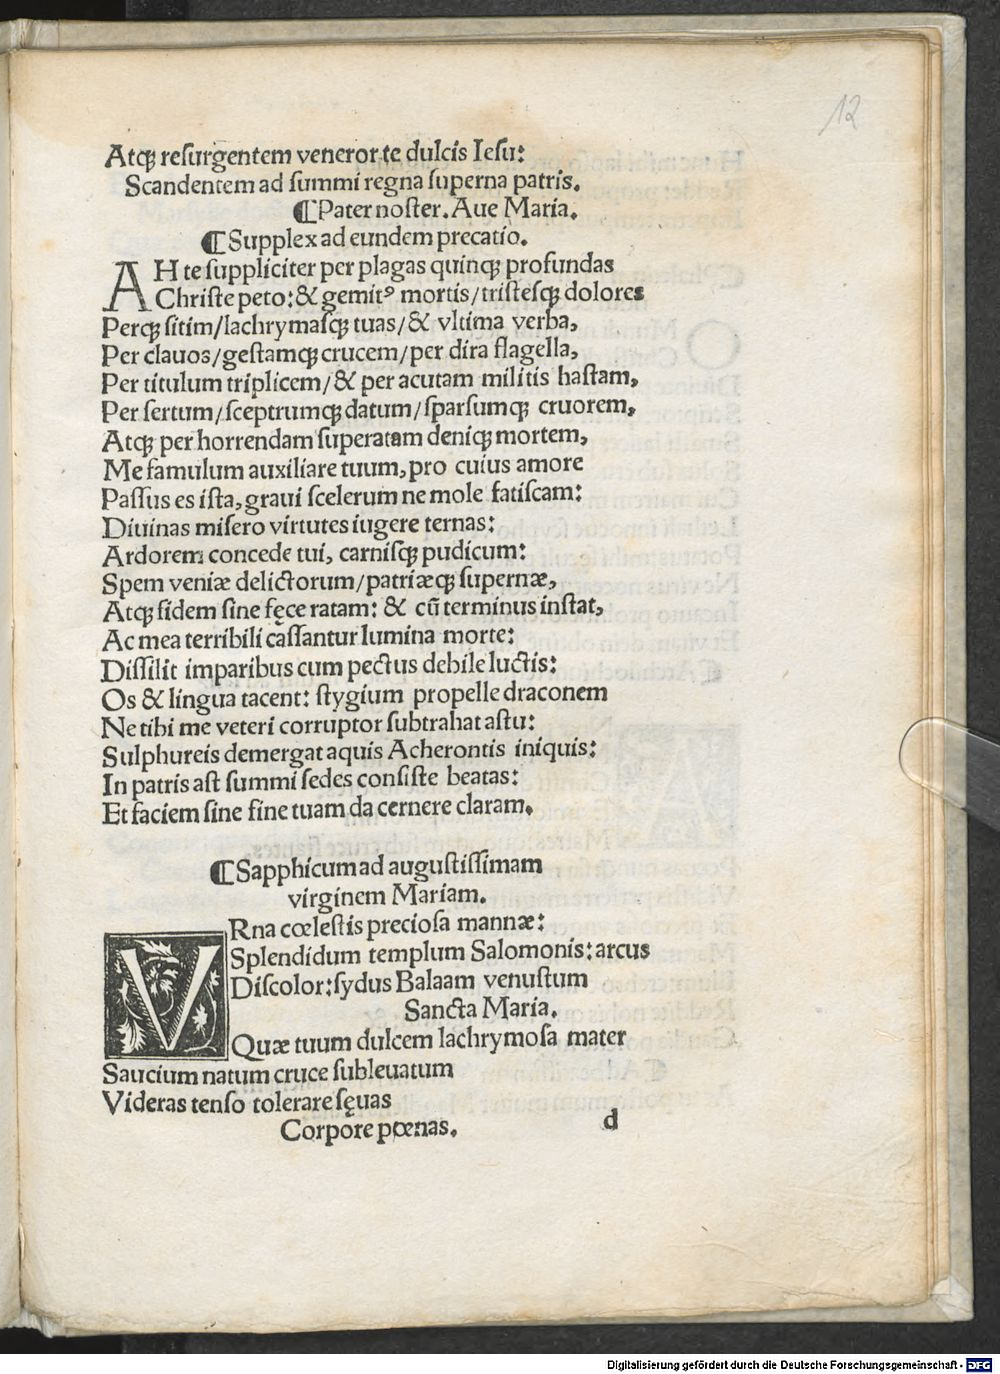 12
Atqꝫ reſurgentem veneror te dulcis Ieſu:
Scandentem ad ſummi regna ſuperna patris.
¶Pater noſter. Aue Maria.
¶Supplex ad eundem precatio.
AH te ſuppliciter per plagas quinqꝫ profundas
Chriſte peto: & gemitꝰ mortis/triſteſqꝫ dolores
Perqꝫ ſitim/lachrymaſqꝫ tuas/& vltima verba,
Per clauos/geſtamqꝫ crucem/per dira flagella,
Per titulum triplicem/& per acutam militis haſtam,
Per ſertum/ſceptrumqꝫ datum/ſparſumqꝫ cruorem,
Atqꝫ per horrendam ſuperatam deniqꝫ mortem,
Me famulum auxiliare tuum, pro cuius amore
Paſſus es iſta, graui ſcelerum ne mole fatiſcam:
Diuinas miſero virtutes iugere ternas:
Ardorem concede tui, carniſqꝫ pudicum:
Spem veniæ delictorum/patriæqꝫ ſupernæ,
Atqꝫ fidem ſine fęce ratam: & cū terminus inſtat,
Ac mea terribili caſſantur lumina morte:
Diſſilit imparibus cum pectus debile luctis:
Os & lingua tacent: ſtygium propelle draconem
Ne tibi me veteri corruptor ſubtrahat aſtu:
Sulphureis demergat aquis Acherontis iniquis:
In patris aſt ſummi ſedes conſiſte beatas:
Et faciem ſine fine tuam da cernere claram.
¶Sapphicum ad auguſtiſſimam
virginem Mariam.
VRna cœleſtis precioſa mannæ:
Splendidum templum Salomonis: arcus
Diſcolor: ſydus Balaam venuſtum
Sancta Maria.
Quæ tuum dulcem lachrymoſa mater
Saucium natum cruce ſubleuatum
Videras tenſo tolerare ſęuas
Corpore pœnas.
d
Digitalisierung gefördert durch die Deutsche Forschungsgemeinschaft - DFG